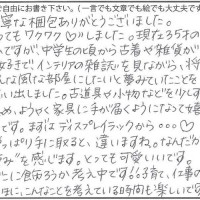 自由にお書き下さい。(一言でも文章でも絵でも大丈夫です
寧な梱包ありがとうございました。
ってもワクワク♡しました。現在35才の
ですが、中学生の頃から古着や雑貨が
好きで、インテリアの雑誌を見ながら、将
んな風な部屋にしたいと夢みていたことを
い出しました。古道具や小物などを少しず
め、ようやく家具に手が届くようになって嬉
です。まずはディスプレイラックから・・・♡
っぱり手に取ると、違いますね。なんだか
み"を感じます。とっても可愛いいです。
に食器棚か考え中です。子育て、仕事の
まに、こんなことを考えている時間も楽しいです